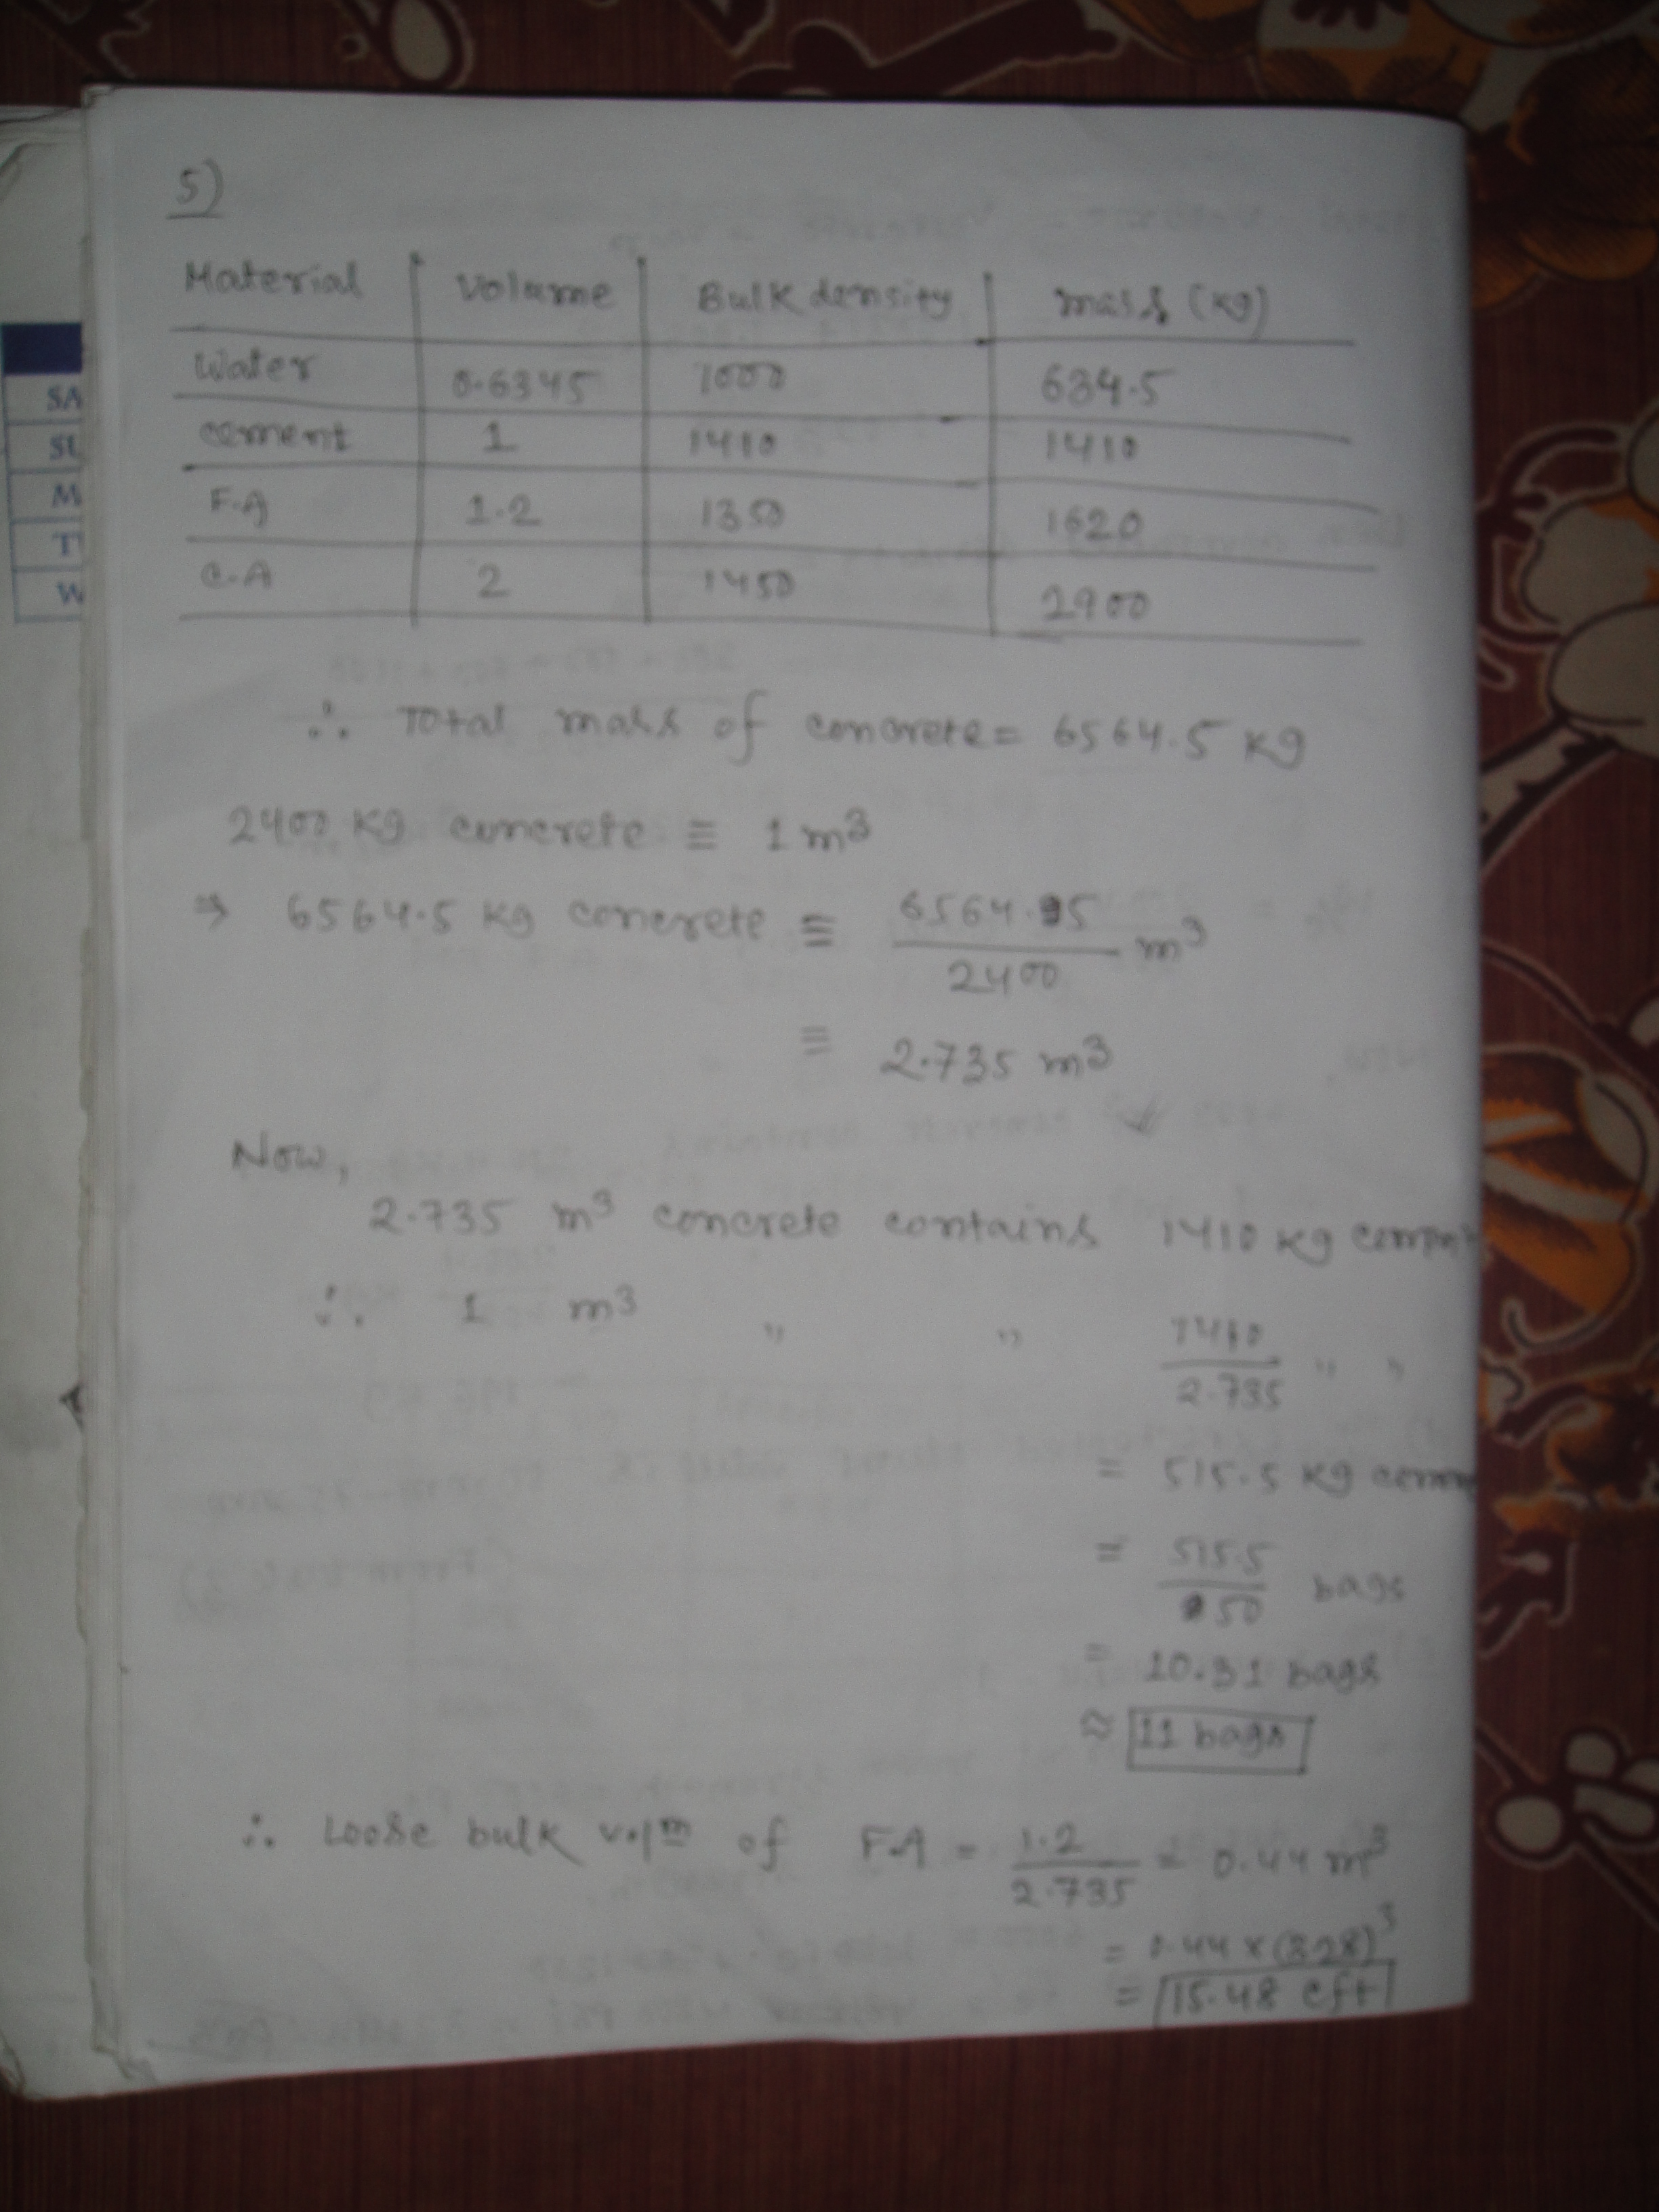 5)
Material Volume Bulk density mass (kg)
Water 0.6345 1000 634.5
cement 1 1410 1410
F.A 1.2 1350 1620
C.A 2 1450 2900
∴ Total mass of concrete = 6564.5 kg
2400 kg concrete ≡ 1 m³
⇒ 6564.5 kg concrete ≡ 6564.5 / 2400 m³
≡ 2.735 m³
Now,
2.735 m³ concrete contains 1410 kg
∴ 1 m³ " " 1410 / 2.735 " "
= 515.5 kg
= 515.5 / 50 bags
= 10.31 bags
≈ 11 bags
∴ Loose bulk volm of FA = 1.2 / 2.735 = 0.44 m³
= 0.44 × (3.28)³
= 15.48 cft
SA
SU
M
T
W